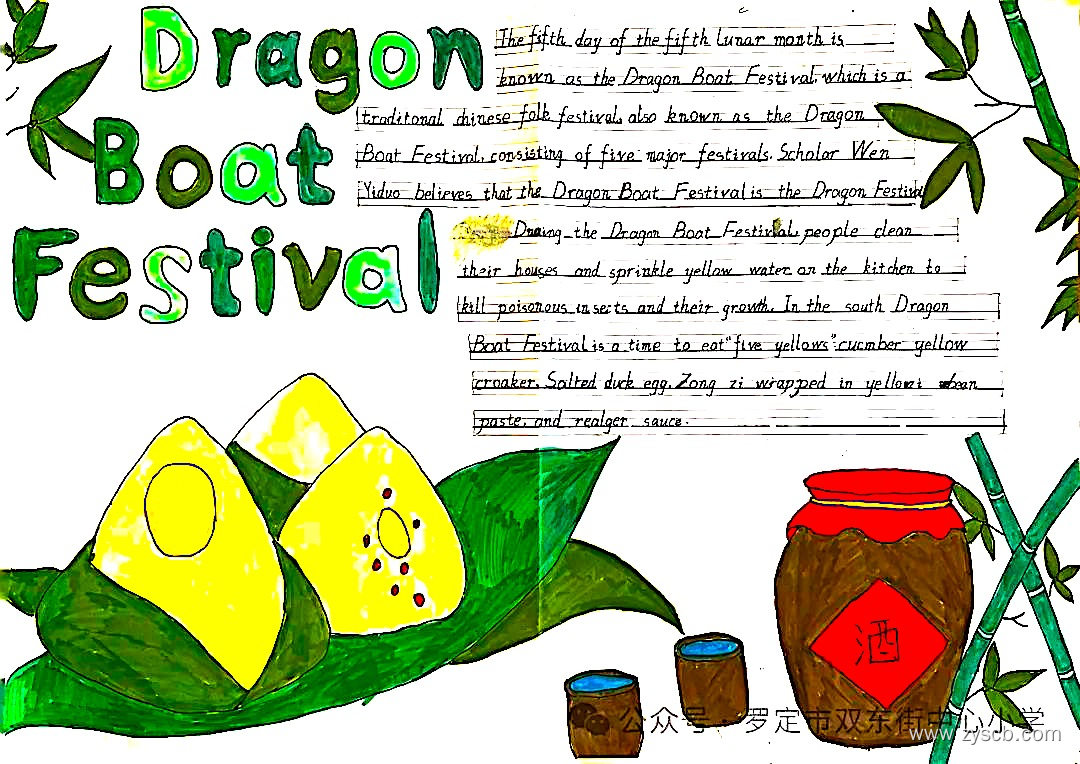 Dragon
Boat
Festival
The fifth day of the fifth Lunar month is
known as the Dragon Boat Festival, which is a
traditonal chinese folk festival, also known as the Dragon
Boat Festival, consisting of five major festivals. Scholar Wen
Yiduo believes that the Dragon Boat Festival is the Dragon Festival
During the Dragon Boat Festival, people clean
their houses and sprinkle yellow water on the kitchen to
kill poisonous insects and their growth. In the south Dragon
Boat Festival is a time to eat "five yellows": cucmber yellow
croaker. Salted duck egg. Zong zi wrapped in yellow bean
paste, and realger sauce.
酒
公众号·罗定市双东街中心小学
www.zyscb.com